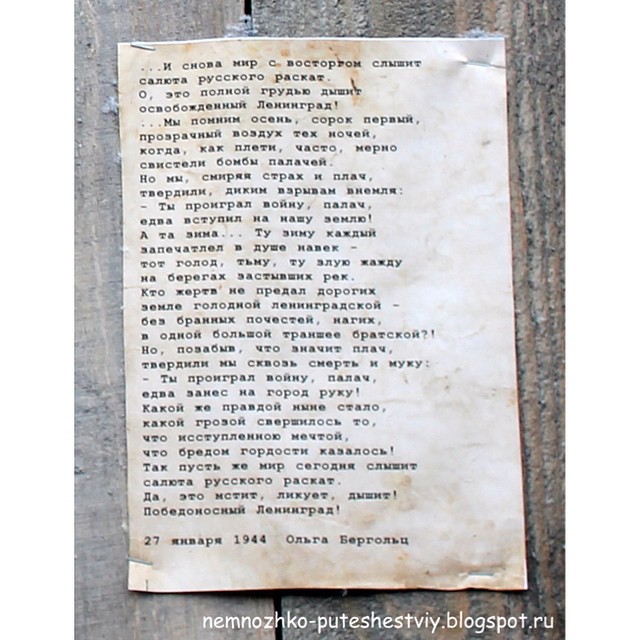 ...И снова мир с восторгом слышит
салюта русского раскат.
О, это полной грудью дышит
освобожденный Ленинград!
...Мы помним осень, сорок первый,
прозрачный воздух тех ночей,
когда, как плети, часто, мерно
свистели бомбы палачей.
Но мы, смиряя страх и плач,
твердили, диким взрывам внемля:
- Ты проиграл войну, палач,
едва вступил на нашу землю!
А та зима... Ту зиму каждый
запечатлел в душе навек -
тот голод, тьму, ту злую жажду
на берегах застывших рек.
Кто жертв не предал дорогих
земле голодной ленинградской -
без бранных почестей, нагих,
в одной большой траншее братской?!
Но, позабыв, что значит плач,
твердили мы сквозь смерть и муку:
- Ты проиграл войну, палач,
едва занес на город руку!
Какой же правдой ныне стало,
какой грозой свершилось то,
что исступленною мечтой,
что бредом гордости казалось!
Так пусть же мир сегодня слышит
салюта русского раскат.
Да, это мстит, ликует, дышит!
Победоносный Ленинград!
27 января 1944 Ольга Бергольц
nemnozhko-puteshestviy.blogspot.ru